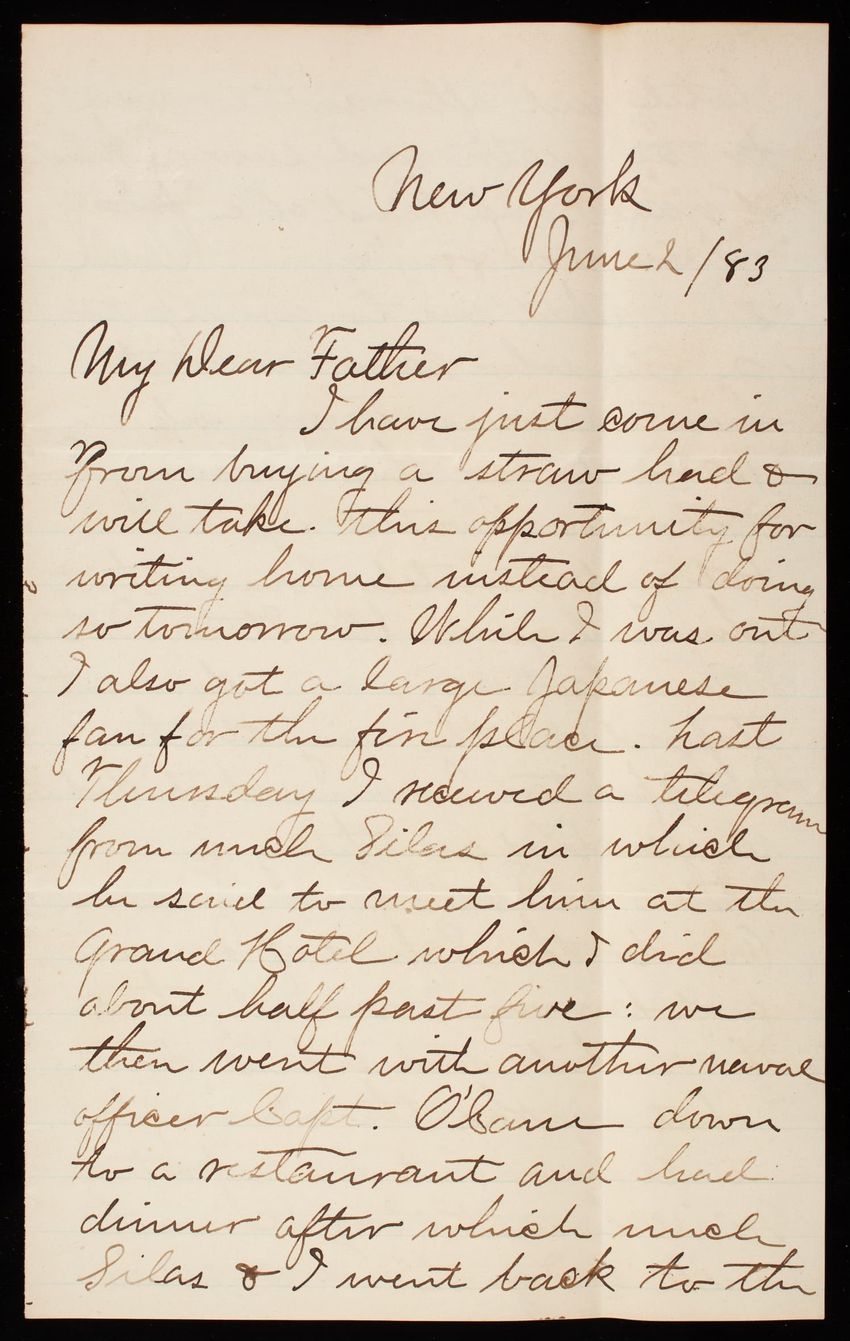 New York
June 2 /83
My Dear Father
I have just come in
from buying a straw had &
will take this opportunity for
writing home instead of doing
so tomorrow. While I was out
I also got a large Japanese
fan for the fire place. Last
Thursday I received a telegram
from uncle Silas in which
he said to meet him at the
Grand Hotel which I did
about half past five: we
then went with another naval
officer Capt. down
to a restaurant and had
dinner after which uncle
Silas & I went back to the